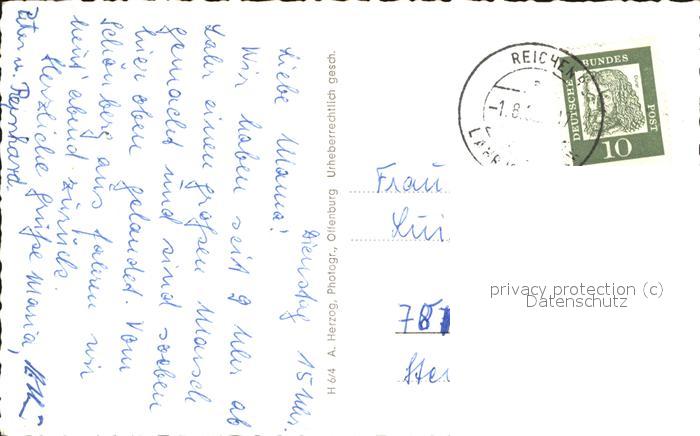 Dienstag 15 Uhr.
Liebe Mama!
Wir haben seit 9 Uhr ab
Lahr einen großen Marsch
gemacht und sind soeben
hier oben gelandet. Vom
Schönberg aus fahren wir
heut abend zurück.
Herzliche Grüße Maria,
Peter u. Reinhard.
H 6/4 A. Herzog, Photogr., Offenburg Urheberrechtlich gesch.
REICHENB
-1.8.
LAHR
DEUTSCHE BUNDES POST
10
Frau
Lui
privacy protection (c)
Datenschutz